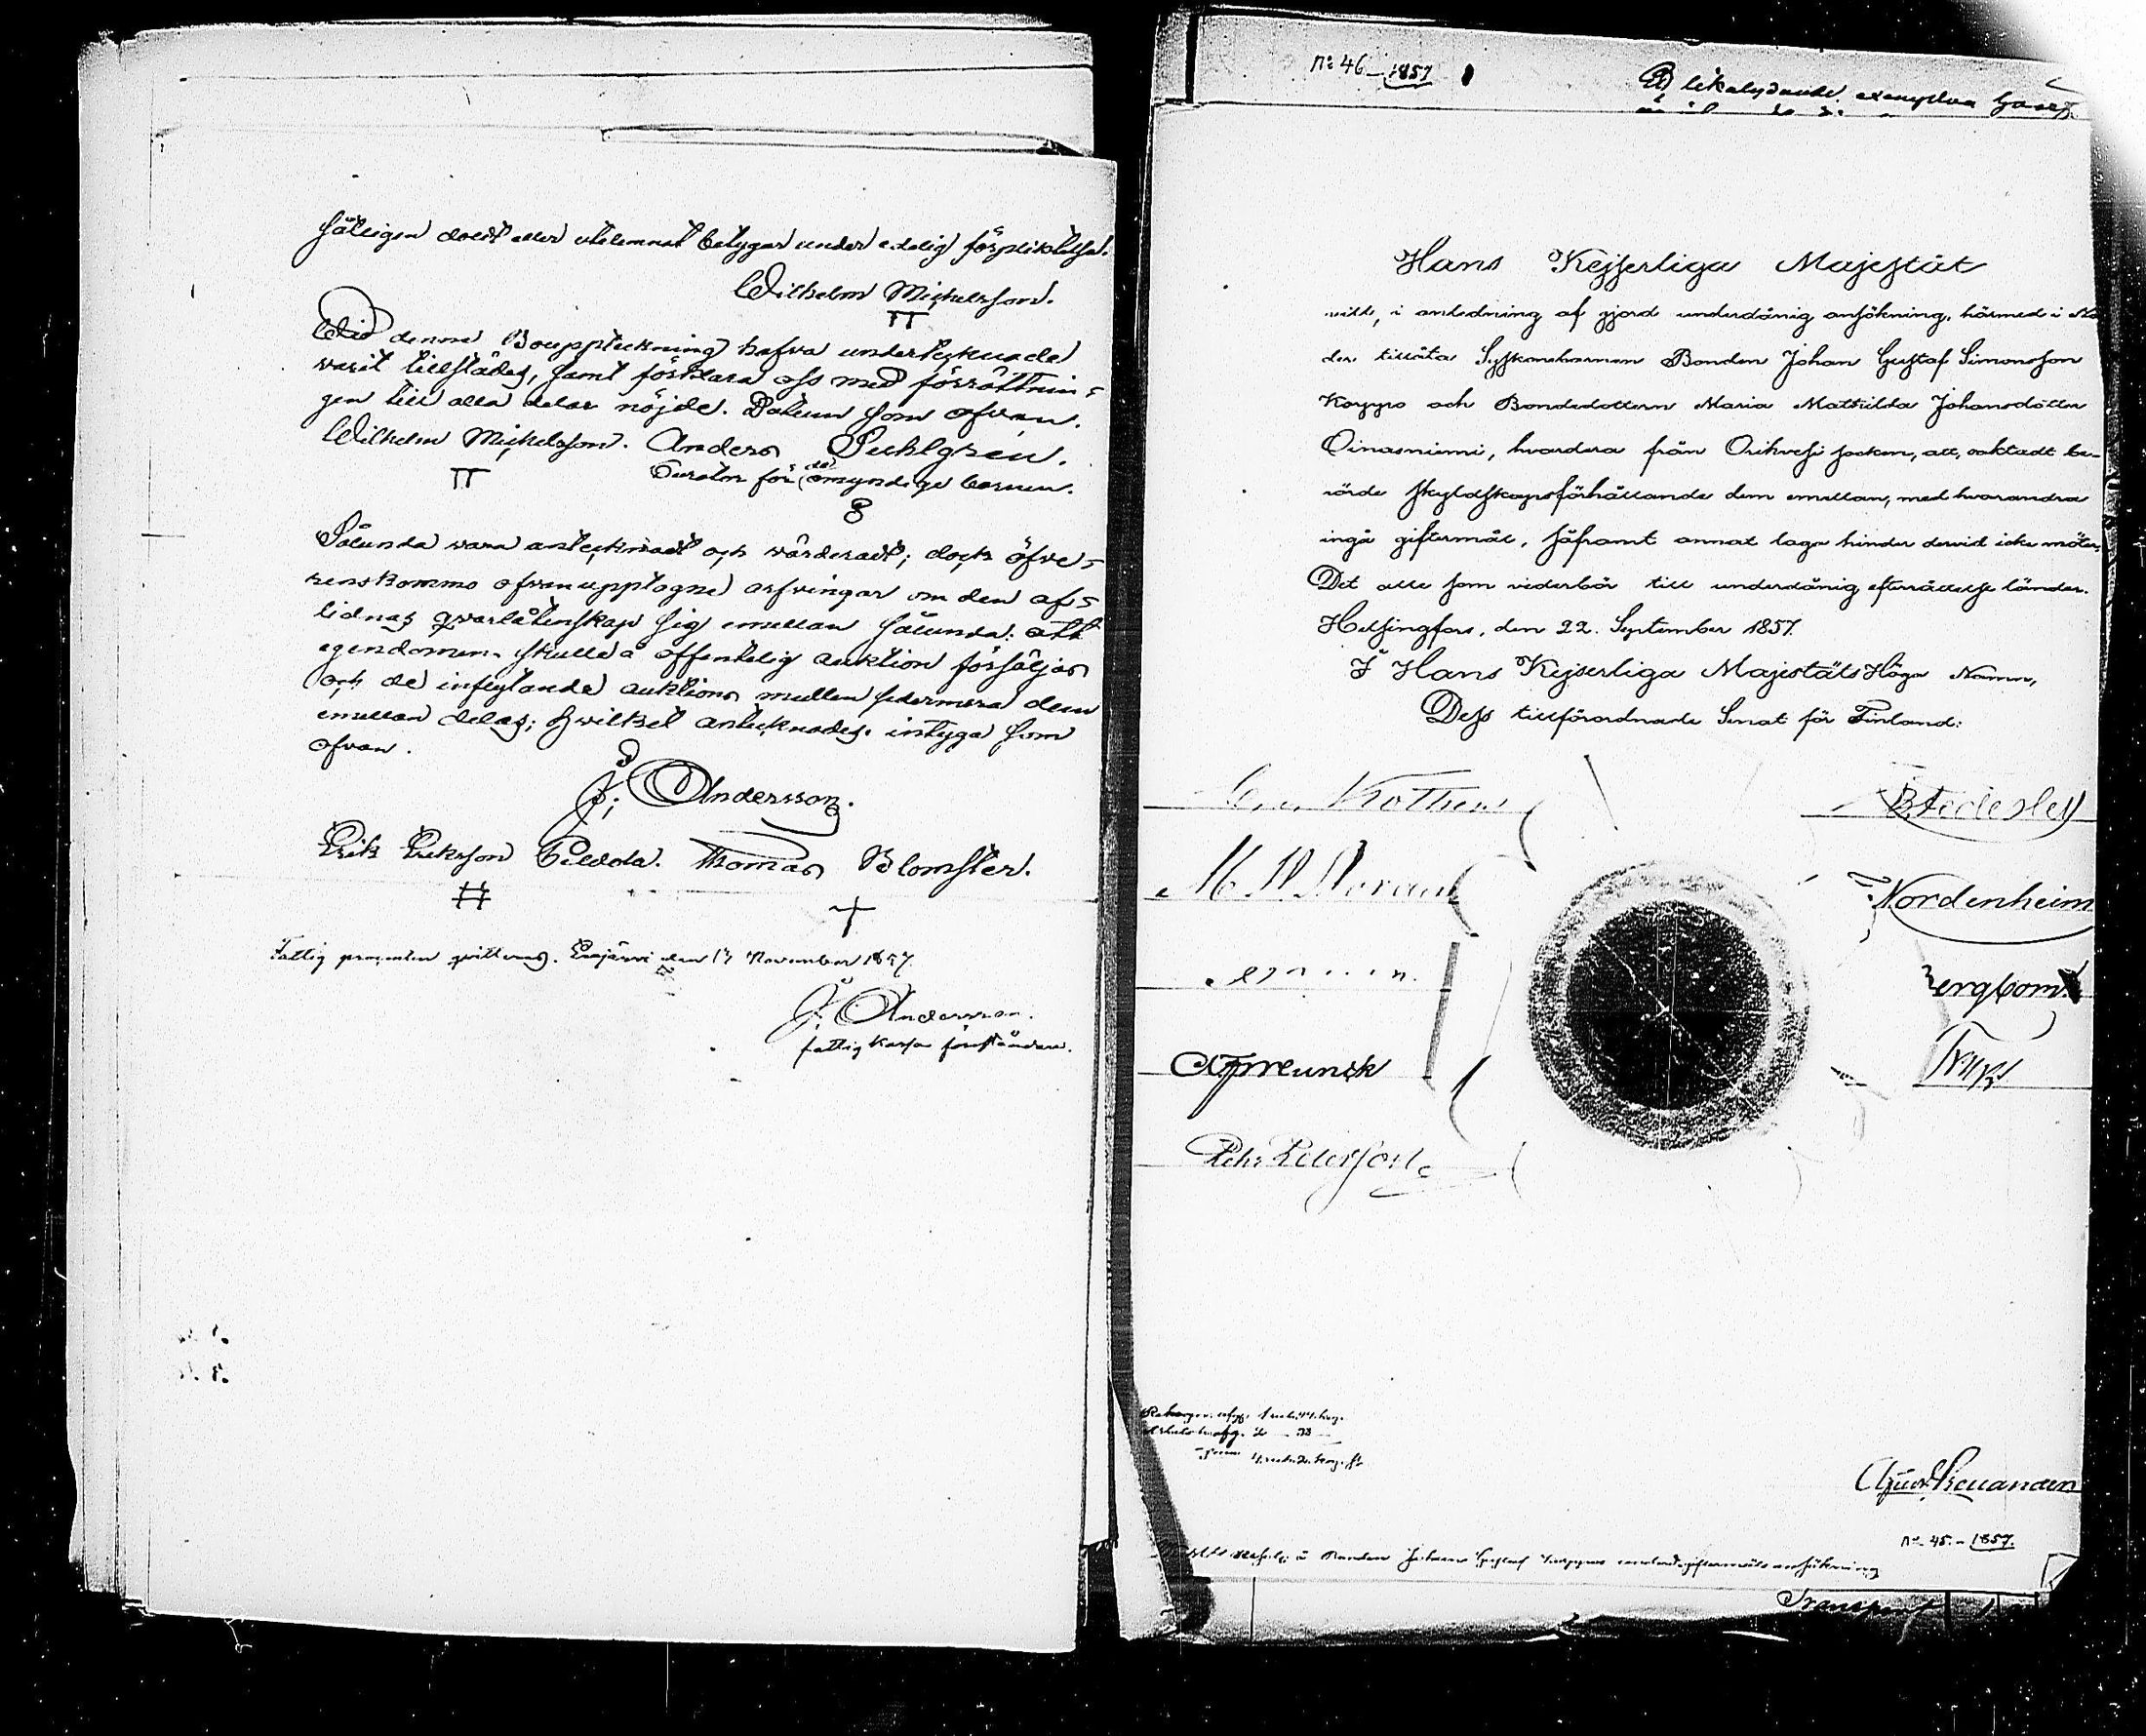 sätligen doldt eller utelemnat betygar under edelig förpliktelse.
Wilhelm Mickelsson.
Wid denna Bouppteckning hafva undertecknade
varit tillstädes, samt förklara oss med förrättnin-
gen till alla delar nöjde. Datum som ofvan.
Wilhelm Mickelsson. Anders
Curator för de omyndige barnen.
Sålunda vara antecknadt och värderadt; dock öfve-
renskommo ofvanupptagne arfvingar om den af-
lidnas qvarlåtenskap sig emellan sålunda: att
egendomen skulle å offentelig auktion försäljas
och de inflytande auktions medlen sedermera dem
emellan delas; hvilket antecknades. intyga som
ofvan.
J. Andersson.
Erik Eriksson Thomas Blomster.
Fattig procenten qvitteras. den 17 November 1857.
J. Andersson.
fattig kassa föreståndare.
No 46 - 1857
likalydande exemplar
Hans Kejserliga Majestät
vill, i anledning af gjord underdånig ansökning, härmed i
der tillåta Syskonebarnen Bonden Johan Gustaf Simonsson
Korppo och Bondedottern Maria Mathilda Johansdotter
Oinasniemi, hvardera från Orihvesi socken, att, oaktadt be-
rörde skyldskapsförhållande dem emellan, med hvarandra
ingå giftermål, såframt annat laga hinder dervid icke möter,
Det alle som vederbör till underdånig efterrättelse länder.
Helsingfors, den 22. September 1857.
I Hans Kejserliga Majestäts Höga Namn,
Dess tillförordnade Senat för Finland:
Nordenheim
Bergbom
No 45. - 1857.
å Bonden Johan Gustaf giftermåls ansökning